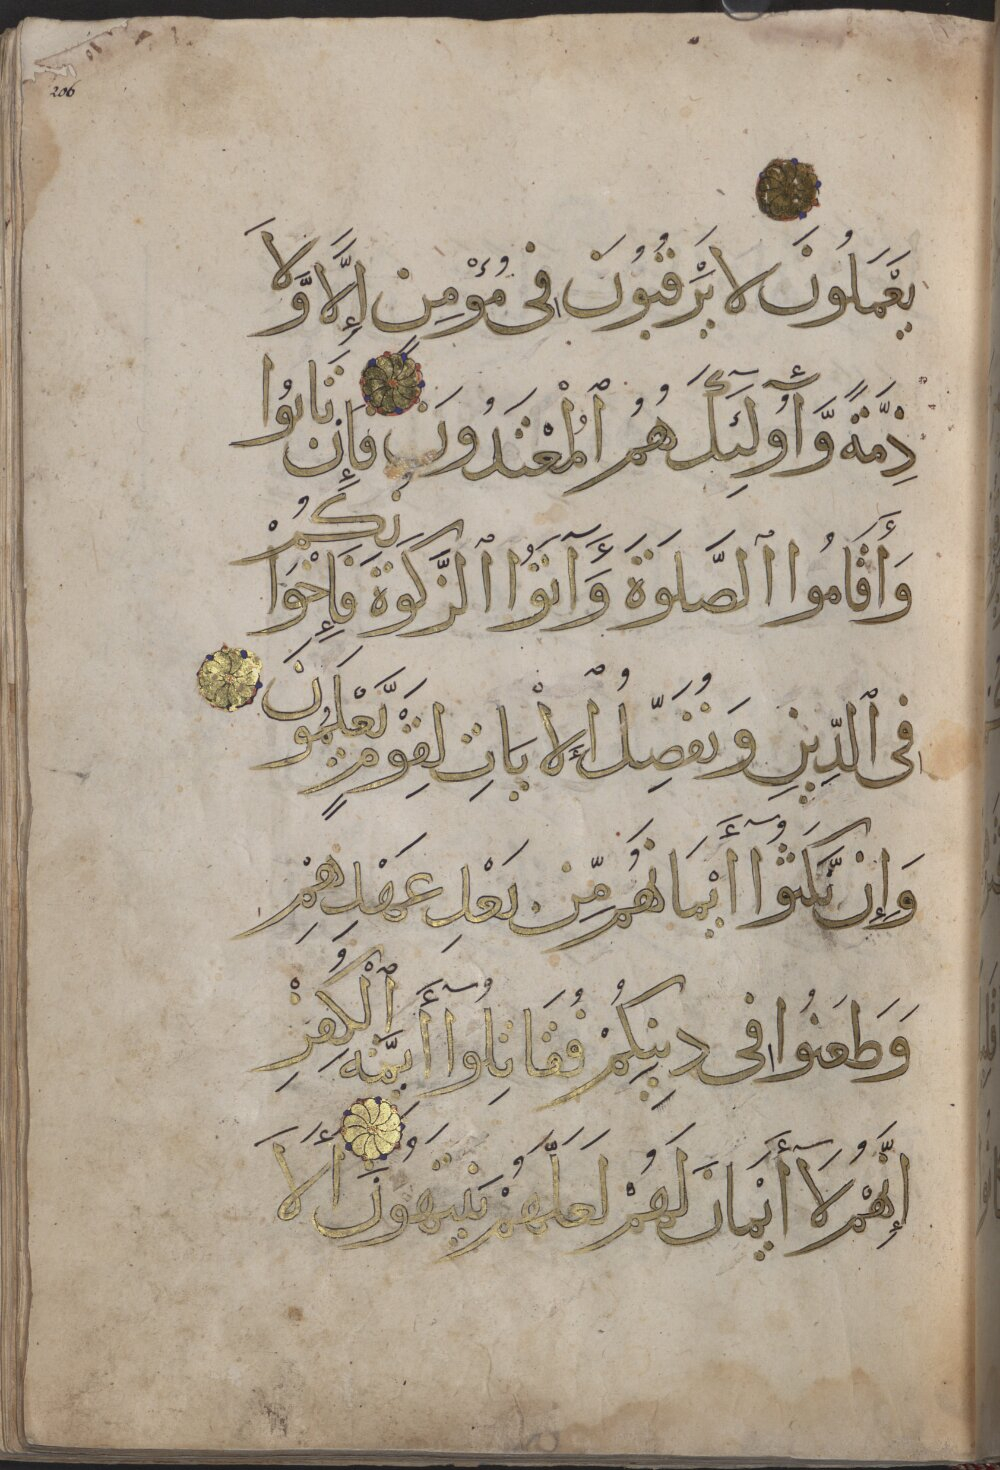 206
يَعْمَلُونَ لَا يَرْقُبُونَ فِى مُؤْمِنٍ إِلًّا وَّلَا
ذِمَّةً وَّأُولَٰٓئِكَ هُمُ ٱلْمُعْتَدُونَ فَإِن تَابُوا
وَأَقَامُوا ٱلصَّلَوٰةَ وَءَاتَوُا ٱلزَّكَوٰةَ فَإِخْوَانُكُمْ
فِى ٱلدِّينِ وَنُفَصِّلُ ٱلْأَيَاتِ لِقَوْمٍ يَّعْلَمُونَ
وَإِن نَّكَثُوٓا أَيْمَانَهُم مِّن بَعْدِ عَهْدِهِمْ
وَطَعَنُوا فِى دِينِكُمْ فَقَاتِلُوٓا أَئِمَّةَ ٱلْكُفْرِ
إِنَّهُمْ لَآ أَيْمَانَ لَهُمْ لَعَلَّهُمْ يَنتَهُونَ أَلَا